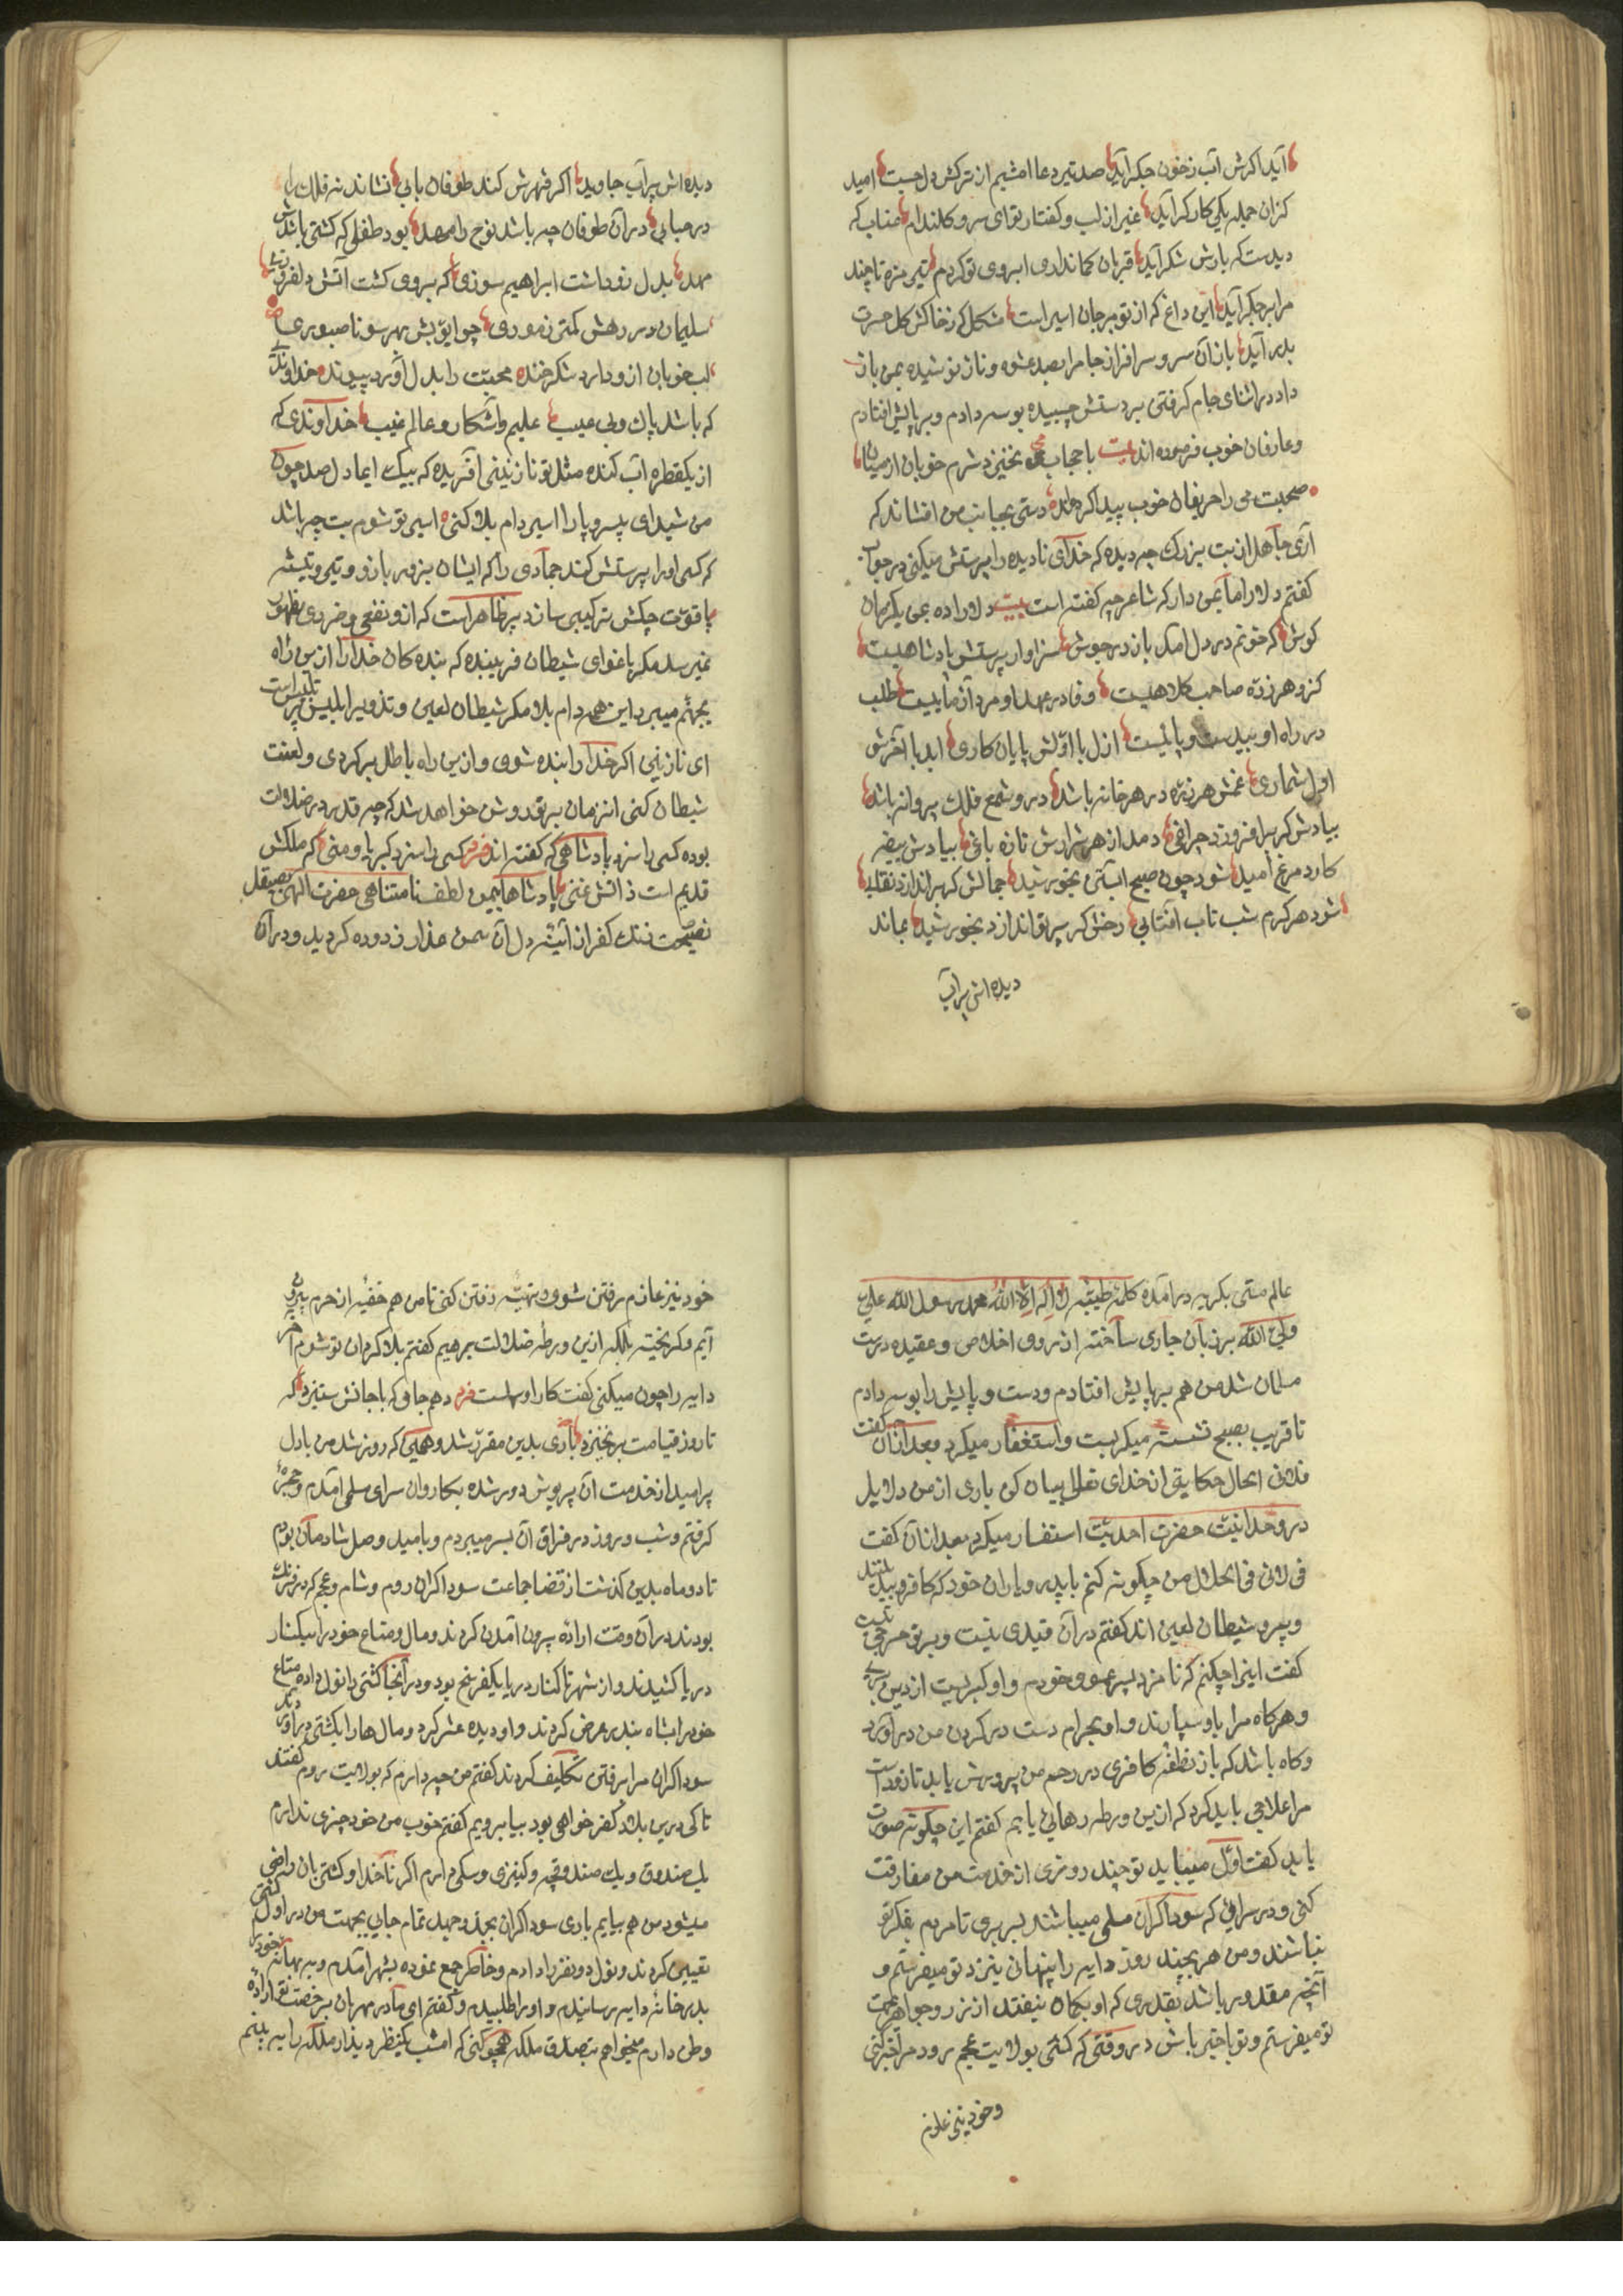 آید اکرش آب زخون جکر آید صد تیر دعا امشبم از ترکش دل جست امید
کزان جمله یکی کارکر آید غیر از لب و کفتار تو ای سرو کلندام عناب که
دیدست که بارش شکر آید قربان کمانداری ابروی تو کردم تیر مژه تا چند
مرا بر جکر آید این داغ که از تو بر جان اسیر است مشکل که ز خاکش کل حسرت
بدر آید باز آن سرو سرافراز جام را بصد عشوه و ناز نوشیده بمن باز
داد در اثنای جام کرفتن بر دستش چسبیده بوسه دادم و بر پایش افتادم
وعارفان خوب فرموده اند بیت با حجاب نخیزد شرم خوبان از میان
صحبت می را حریفان خوب پیدا کرده اند دستی بجانب من افشاند که
آری جاهل از بت بزرک چه دیده که خدای نادیده را پرستش میکنی در جواب
کفتم دلاراما نمی دار که شاعر چه کفته است بیت دلا راده بمی یکزمان
کوش که خونم در دل آمد باز در جوش سزاوار پرستش پادشاهیست
کزو هر ذره صاحب کلاهیست وفا در عهد او مرد آزماییست طلب
در راه او بیدست و پاییست ازل با اولش پایان کاری ابد با آخرش
اول شماری غمش هر ذره در هر خانه باشد درو شمع فلک پروانه باشد
بیادش کر برافروزد چراغی دمد از هر شرارش تازه باغی بیادش بیضه
کارد مرغ امید شود چون صبح آبستن بخورشید جمالش کر براندازد نقابی
شود هر کرم شب تاب آفتابی رخش کر پرتو اندازد بخورشید بماند
دیده اش پرآب
دیده اش پرآب جاوید اکر قهرش کند طوفان بابی نشاند نه فلک را
در حبابی در آن طوفان چه باشد نوح را مهد بود طفلی که کشتی باشدش
مهد بدل زو داشت ابراهیم سوزی که بروی کشت آتش دلفروزی
سلیمان در رهش کمتر ز موری چو ایوبش بهر سو ناصبوری
لب خوبان ازو دارد شکرخنده محبت را بدل او کرد پیوند خداوندی
که باشد پاک و بی عیب علیم و آشکار و عالم غیب خداوندی که
از یکقطره آب کنده مثل تو نازنینی آفریده که بیک ایما دل صد چون
من شیدای بیسر و پا را اسیر دام بلا کنی اسیر تو شوم بت چه باشد
که کسی او را پرستش کند جمادی را که ایشان بزور بازو و تیر و تیشه
با قوت چکش ترکیبی سازد پر ظاهر است که ازو نفعی و ضرری بظهور
نمیرسد مکر باغوای شیطان فریبنده که بنده کان خدا را ازین راه
بجهنم میبرد این همه دام بلا مکر شیطان لعین و تذویر ابلیس پر تلبیس است
ای نازنین اکر خدا را بنده شوی و ازین راه باطل برکردی و لعنت
شیطان کنی آنزمان بر تو روشن خواهد شد که چه قدر در ضلالت
بوده کسی را سزد پادشاهی که کفته اند فرد کسی را سزد کبریا و منی که ملکش
قدیم است ذاتش غنی پادشاها بیمن لطف نامتناهی حضرت الهی بصیقل
نصیحت زنک کفر از آئینه دل آن سمن عذار زدوده کردید و در آن
عالم مستی بکریه در آمده کلمه طیبه لا اله الا الله محمد رسول الله علی
ولی الله بر زبان جاری ساخته از روی اخلاص و عقیده درست
مسلمان شد من هم بر پایش افتادم و دست و پایش را بوسه دادم
تا قریب بصبح نشسته میکریست و استغفار میکرد بعد از آن کفت
فلانی الحال حکایتی از خدای تعالی بیان کن باری از من دلایل
در وحدانیت حضرت احدیت استفسار میکرد بعد از آن کفت
فلانی فی الحال من چکونه کنم با پدر و یاران خود که کافر و بیدینند
و پیرو شیطان لعین اند کفتم در آن قیدی نیست و بر تو حرجی نیست
کفت اینرا چکنم که نامزد پسر عمو خودم و او کبریست از دین بری
و هرکاه مرا باو سپارند و او بحرام دست در کردن من درآورد
وکاه باشد که باز نطفه کافری در رحم من پرورش یابد تا زود است
مرا علاجی باید کرد که ازین ورطه رهائی یابم کفتم این چکونه صورت
یابد کفت اول میباید تو چند روزی از خدمت من مفارقت
کنی و در سرائی که سوداکران مسلمی میباشند بسر بری تا مردم بفکر تو
نباشند و من هر بچند روز دایه را پنهانی نیز نزد تو میفرستم و
آنچه مقدور باشد بقدری که او بکمان نیفتد از زر و جواهر بجهت
تو میفرستم و تو با خبر باش در وقتی که کشتی بولایت عجم رود مرا خبر کنی
و خود نیز عازم
خود نیز عازم رفتن شوی و تهیه رفتن کنی تا من هم خفیه از حرم بیرون
آیم و کریخته بلکه ازین ورطه ضلالت برهیم کفتم بلا کردان تو شوم آخر
دایه را چون میکنی کفت کار او سهلست فرد دهم جامی که با جانش ستیزد که
تا روز قیامت برنخیزد باری بدین مقرر شد و همین که روز شد من با دل
پر امید از خدمت آن پریوش دور شده بکاروان سرای مسلمی آمدم و حجرۀ
کرفتم و شب و روز در فراق آن بسر میبردم و بامید وصل شادمان بودم
تا دو ماه بدین کذشت از قضا جماعت سوداکران روم و شام و عجم که در فرنک
بودند در آن وقت اراده بیرون آمدن کردند و مال و متاع خود را بکنار
دریا کشیدند و از شهر تا کنار دریا یکفرسخ بود و در آنجا کشتی را نول داده متاع
خود را بشاه بندر عرض کردند و او دیده عشر کرد و مال ها را بکشتی در آوردند
سوداکران مرا برفتن تکلیف کردند کفتم من چه دارم که بولایت روم کفتند
تا کی درین بلاد کفر خواهی بود بیا برویم کفتم خوب من خود چیزی ندارم
یک صندوق و یک صندوقچه و کنیزی و سکی دارم اکر ناخدا و کشتی بان راضی
میشود من هم بیایم باری سوداکران بجد و جهد تمام جایی بجهت من در اول کشتی
تعیین کردند و نول دو نفر را دادم و خاطر جمع نموده بشهر آمدم و به بهانه خود را
بدر خانه دایه رسانیدم و او را طلبیدم و کفتم ای مادر مهربان برخصت تو ارادۀ
وطن دارم میخواهم بتصدق ملکه همچو کنی که امشب یکنظر دیدار ملکه را به بینم